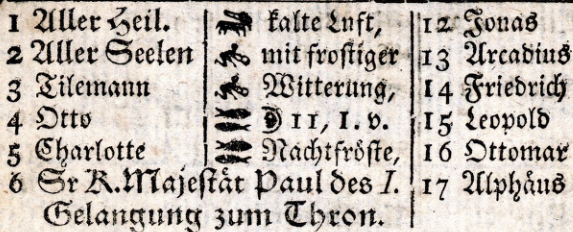 1 Aller Heil. kalte Luft, 12 Jonas
2 Aller Seelen mit frostiger 13 Arcadius
3 Tilemann Witterung, 14 Friedrich
4 Otto 11, 1. v. 15 Leopold
5 Charlotte Nachtfröste, 16 Ottomar
6 Sr K. Majestät Paul des I. 17 Alphäus
Gelangung zum Thron.